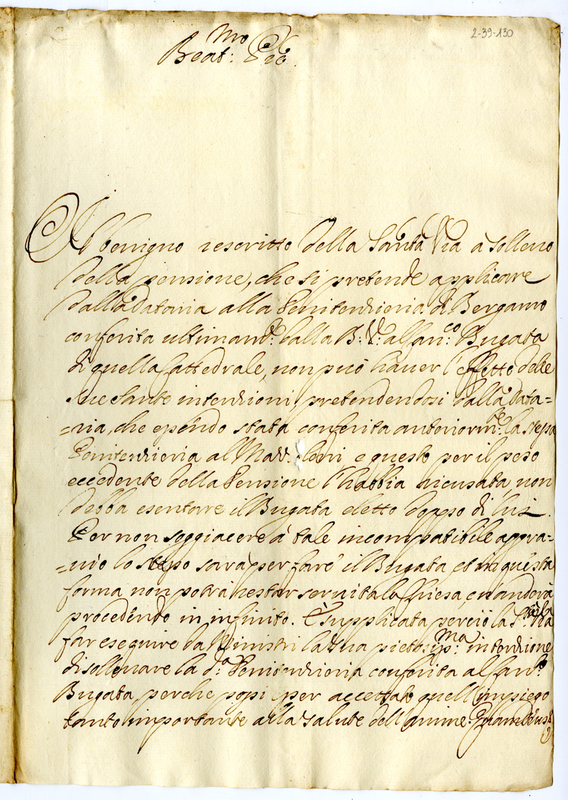 2-39-130
Beat:mo P̃re
Il benigno rescritto della Santità Vra a sollevo
della pensione, che si pretende applicare
dalla Dataria alla Penitenzieria di Bergamo
conferita ultimam:te dalla B: V: al Can:co Bugata
di quella Cattedrale, non può haver l'effetto delle
sue sante intenzioni pretendendosi dalla Data=
=ria, che essendo stata conferita anteriorm:te la stessa
Penitenzieria al e questo per il peso
eccedente della Pensione l'habbia ricusata non
debba esentare il Bugata eletto doppo di lui.
Per non soggiacere à tale incompatibile aggra=
=vio lo stesso sarà per far' il Bugata et in questa
forma non potrà restar servita la Chiesa e mandarà
procedendo in infinito. È supplicata perciò la S:tà Vra
far eseguire da Ministri la sua pietos:ma intenzione
di sollevare la d:a Penitenzieria conferita al Can:co
Bugata perche possi per accettato quell'impiego
tanto importante alla salute dell'anime.